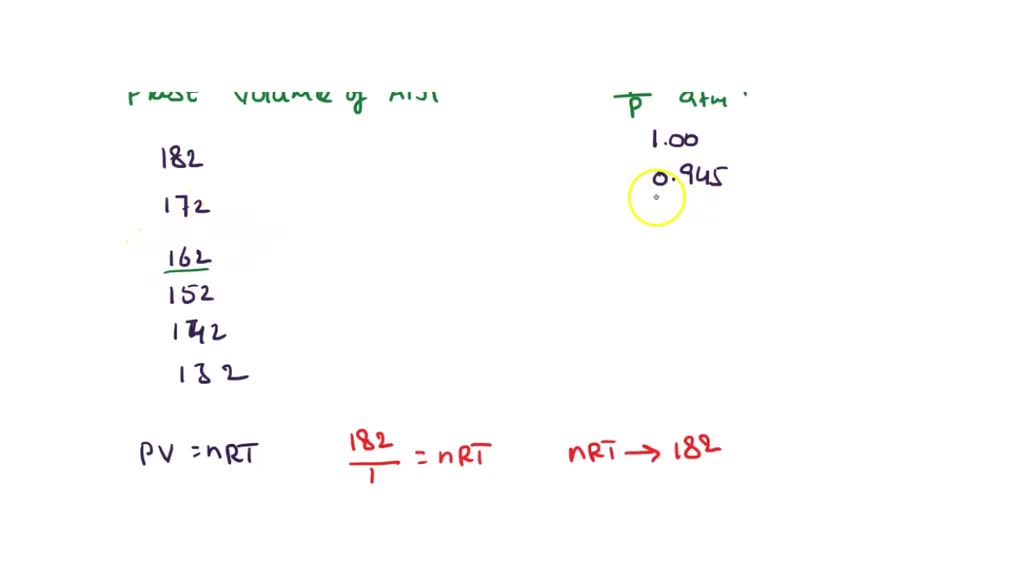 Phase Volume of Aist
1/P atm.
182
172
162
152
142
132
1.00
0.945
PV = nRT
182/1 = nRT
nRT → 182